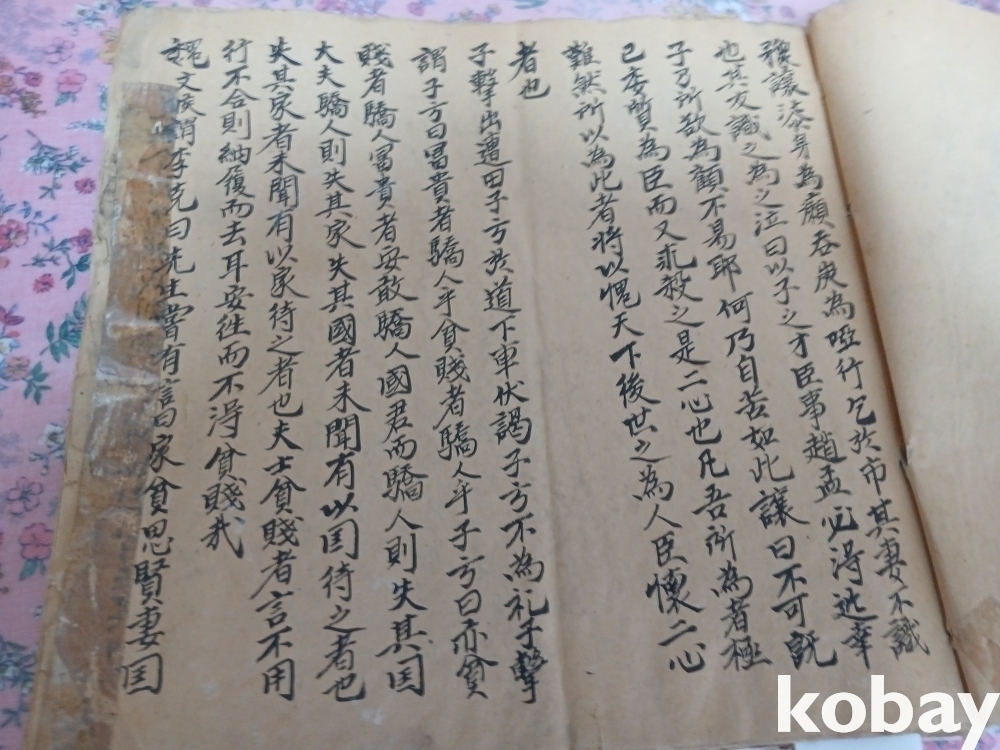 豫讓漆身為癩吞炭為啞行乞於市其妻不識
也其友識之為之泣曰以子之才臣事趙孟必得近幸
子乃所欲為顧不易耶何乃自苦如此讓曰不可既
已委質為臣而又求殺之是二心也凡吾所為者極
難然所以為此者將以愧天下後世之為人臣懷二心
者也
子擊出遭田子方於道下車伏謁子方不為礼子擊
謂子方曰富貴者驕人乎貧賤者驕人乎子方曰亦貧
賤者驕人富貴者安敢驕人國君而驕人則失其国
大夫驕人則失其家失其國者未聞有以国待之者也
失其家者未聞有以家待之者也夫士貧賤者言不用
行不合則納履而去耳安往而不得貧賤哉
魏文侯謂李克曰先生嘗有言曰家貧思賢妻国
kobay